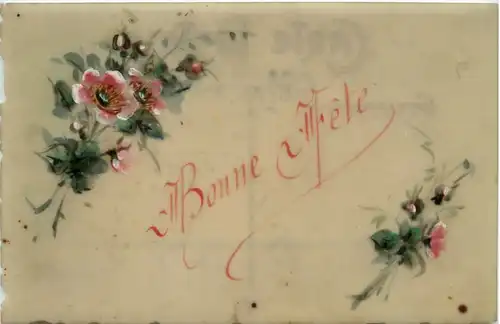 Bonne Fête